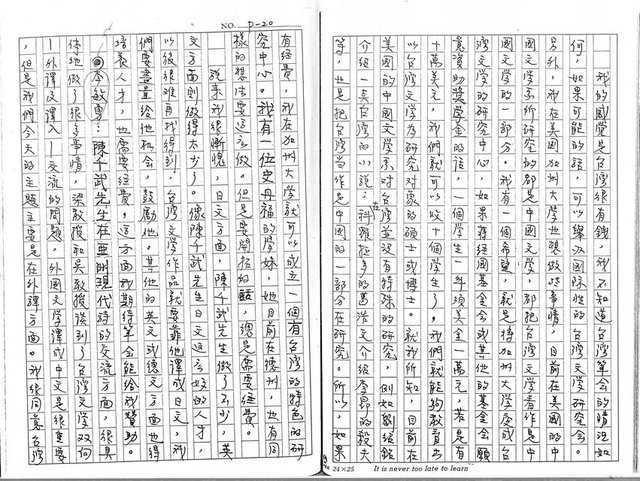 NO. D-20
我的感覺是台灣很有錢，我不知道台灣筆會的情況如
何，如果可能的話，可以舉辦國際性的台灣文學研究會。
另外，我在美國加州大學也想做些事情，目前在美國的中
國文學系所研究的都是中國文學，都把台灣文學看作是中
國文學的一部分。我有一個希望，就是將加州大學變成台
灣文學的研究中心，如果蔣經國基金會或其他的基金會願
意資助獎學金的話，一個學生一年項美金一萬元，若是有
十萬美元，我們就可以收十個學生了，我們就能夠教育出
以台灣文學為研究對象的碩士或博士。就我所知，目前在
美國的中國文學系對台灣並沒有特殊的研究，例如劉紹銘
介紹一具台灣的小說，科羅拉多的葛浩文介紹李昂的殺夫
等，也是把台灣當作是中國的一部分在研究。所以，如果
24×25 It is never too late to learn
有經費，我在加州大學就可以成立一個有台灣的特色的研
究中心。我有一位史丹福的學妹，她目前在德州，也有同
樣的想法要這麼做。但是要開拓的話，總是需要經費。
說來我很慚愧，日文方面，陳千武先生做了不少，英
文方面則做得太少了。像陳千武先生日文這麼好的人才，
以後很難再找得到，台灣文學作品就要靠他譯成日文，我
們要盡量給他機會，鼓勵他。其他的英文或德文方面也得
培養人才，也需要經費，這方面我期待筆會能給我贊助。
◎李敏勇：陳千武先生在亞洲現代詩的交流方面，很具
體地做了很多事情，梁教授和吳教授談到了台灣文學双向
｜外譯及譯入｜交流的問題，外國文學譯成中文是很重要
，但是我們今天的主題主要是在外譯方面。我很同意台灣